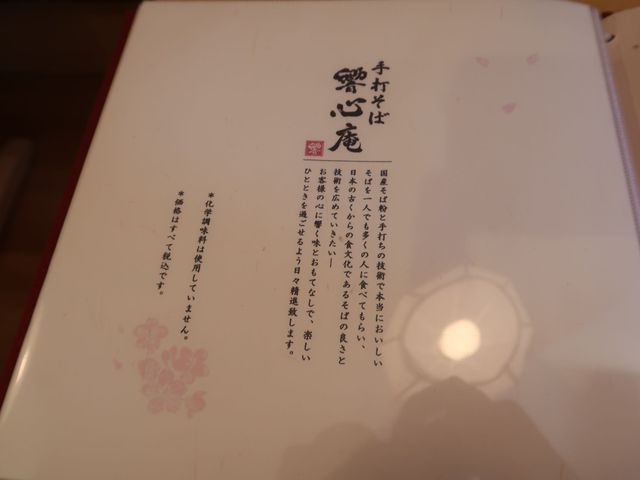 手打そば
響心庵
響
国産そば粉と手打ちの技術で本当においしい
そばを一人でも多くの人に食べてもらい、
日本の古くからの食文化であるそばの良さと
技術を広めていきたい―
お客様の心に響く味とおもてなしで、楽しい
ひとときを過ごせるよう日々精進致します。
*化学調味料は使用していません。
*価格はすべて税込です。